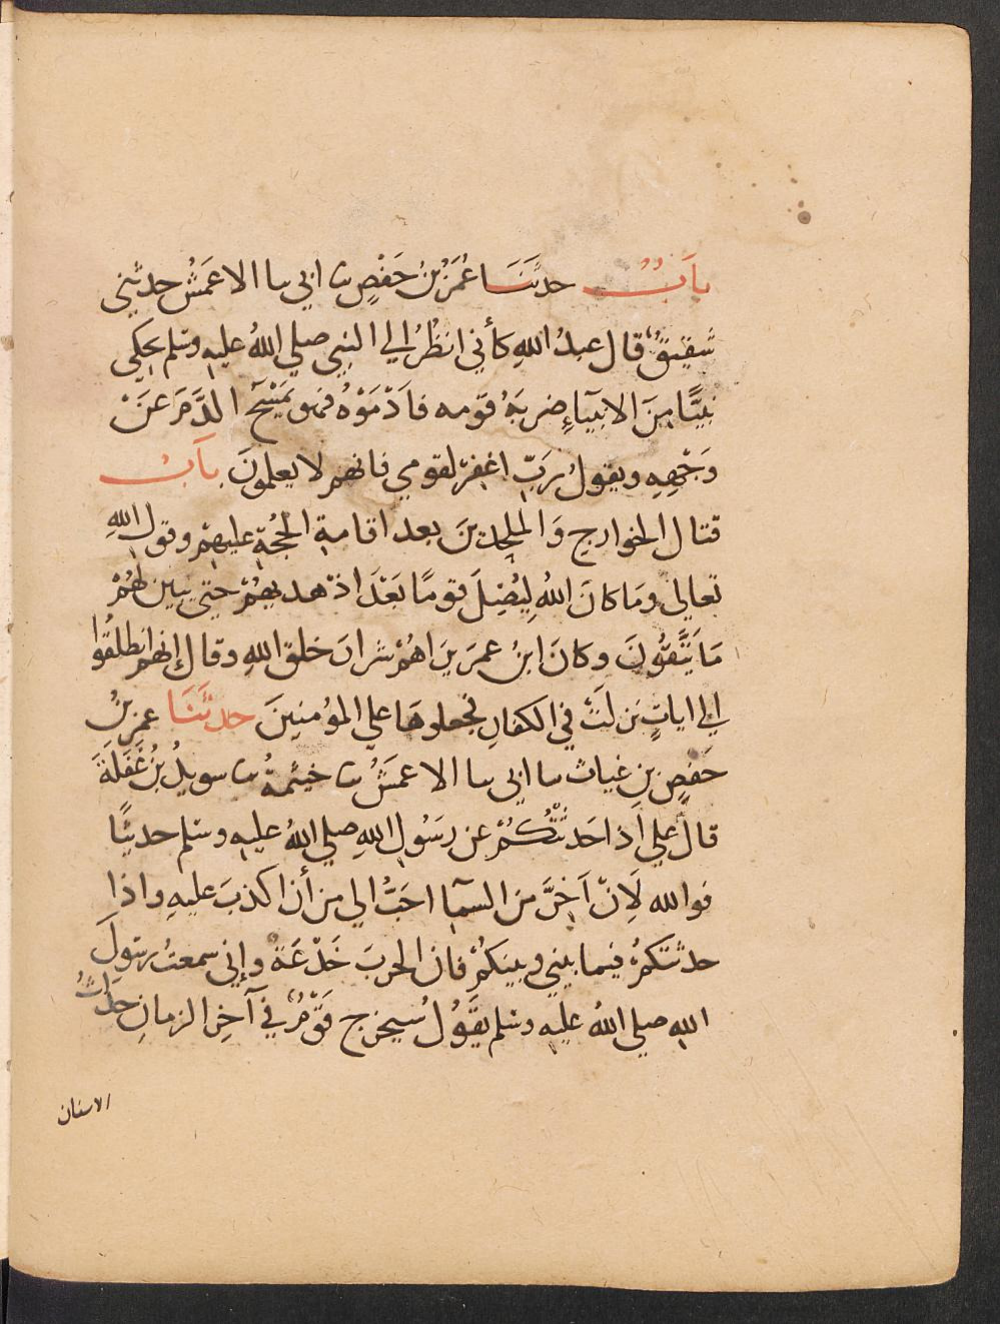 بابٌ حدثنا عُمَرُ بنُ حَفْصٍ ثنا ابي ثنا الاعمَشُ حدثني
شقيقٌ قال عبدُ اللهِ كأني انظُرُ الي النبي صلي اللهُ عليه وسلم يحكي
نبيًّا مِنَ الانبيآءِ ضربَهُ قومه فادْمَوْهُ فهو يَمْسَحُ الدَّمَ عَنْ
وَجْهِهِ ويقولُ رَبّ اغفِرْ لقومي فانهم لا يعلمونَ بابُ
قتال الخوارج وَالملحدينَ بعد اقامةِ الحُجَّةِ عليهِمْ وقول اللهِ
تعالي ومَا كانَ اللهُ لِيُضِلَّ قومًا بَعْدَ اذْ هديهُمْ حتي يبين لهُمْ
مَا يَتَّقُونَ وكانَ ابنُ عمرَ يَراهُمْ شرارَ خلق اللهِ وقال إنهم انطلقُوا
الي اياتٍ نزلَتْ في الكفارِ فجعلوهَا علي المؤمنينَ حدثَنَا عمر بنُ
حَفصِ بنِ غياث ثنا ابي ثنا الاعمَشُ ثنا خيثمةُ ثنا سويدُ بنُ غَفَلَةَ
قال علي اذا حَدثْتُكُمْ عن رسُولِ اللهِ صلي اللهُ عليه وسلم حديثًا
فوالله لَانْ اَخِرَّ منَ السمآءِ احَبُّ الي من أن اكذبَ عليهِ واذا
حدثتكمْ فيما بيني وبينكُمْ فان الحربَ خَدْعَةٌ وإني سمعتُ رسولَ
اللهِ صلي اللهُ عليه وسلم يقَولُ سيخرج قَوْمٌ في آخِرِ الزمانِ حدَّاثُ
الاسنان